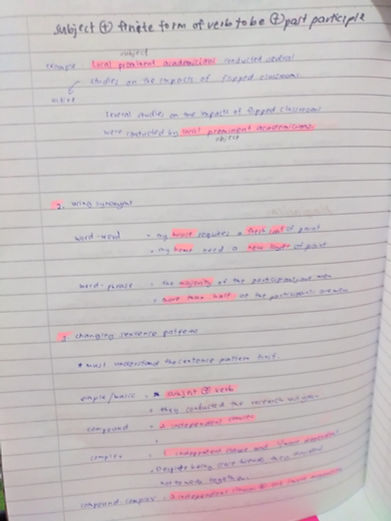 subject ⊕ finite form of verb to be ⊕ past participle
subject
example local prominent academicians conducted several
studies on the impacts of flipped classroom.
active
several studies on the impacts of flipped classroom
were conducted by local prominent academicians.
object
2. using synonyms
word-word - my house requires a fresh coat of paint
- my home need a new layer of paint
word-phrase - the majority of the participants are men
- more than half of the participants are men
3. changing sentence patterns
* must understand the sentence pattern first.
simple/basic - subject ⊕ verb
- they conducted the research
compound - 2 independent clauses
complex - 1 independent clause and
- Despite being
compound-complex - 2 independent clauses